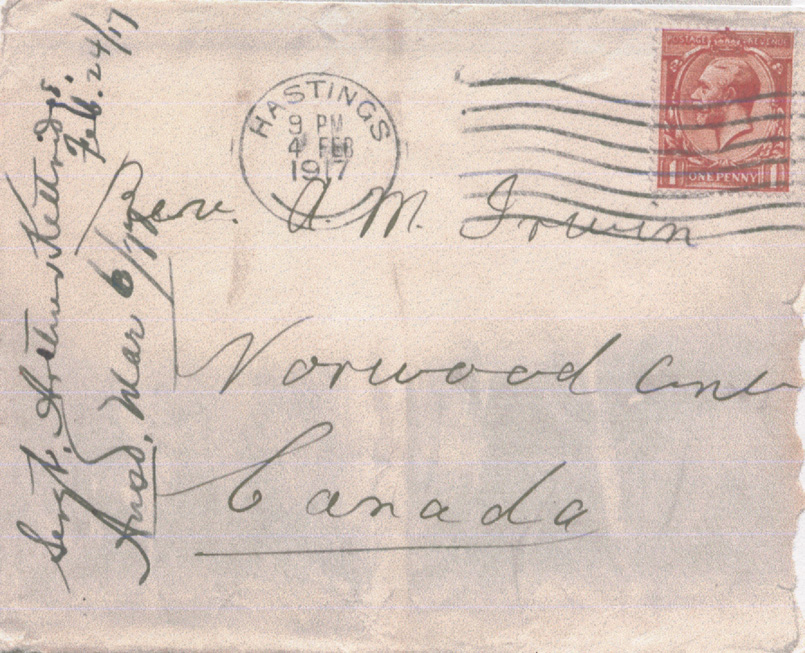 POSTAGE REVENUE
1 ONE PENNY 1
HASTINGS
9 PM
4 FEB
1917
Rev. A. M. Irwin
Norwood
Canada
Sergt. Arthur Kettridge.
Feb. 24/17
Ansd. Mar 6/17